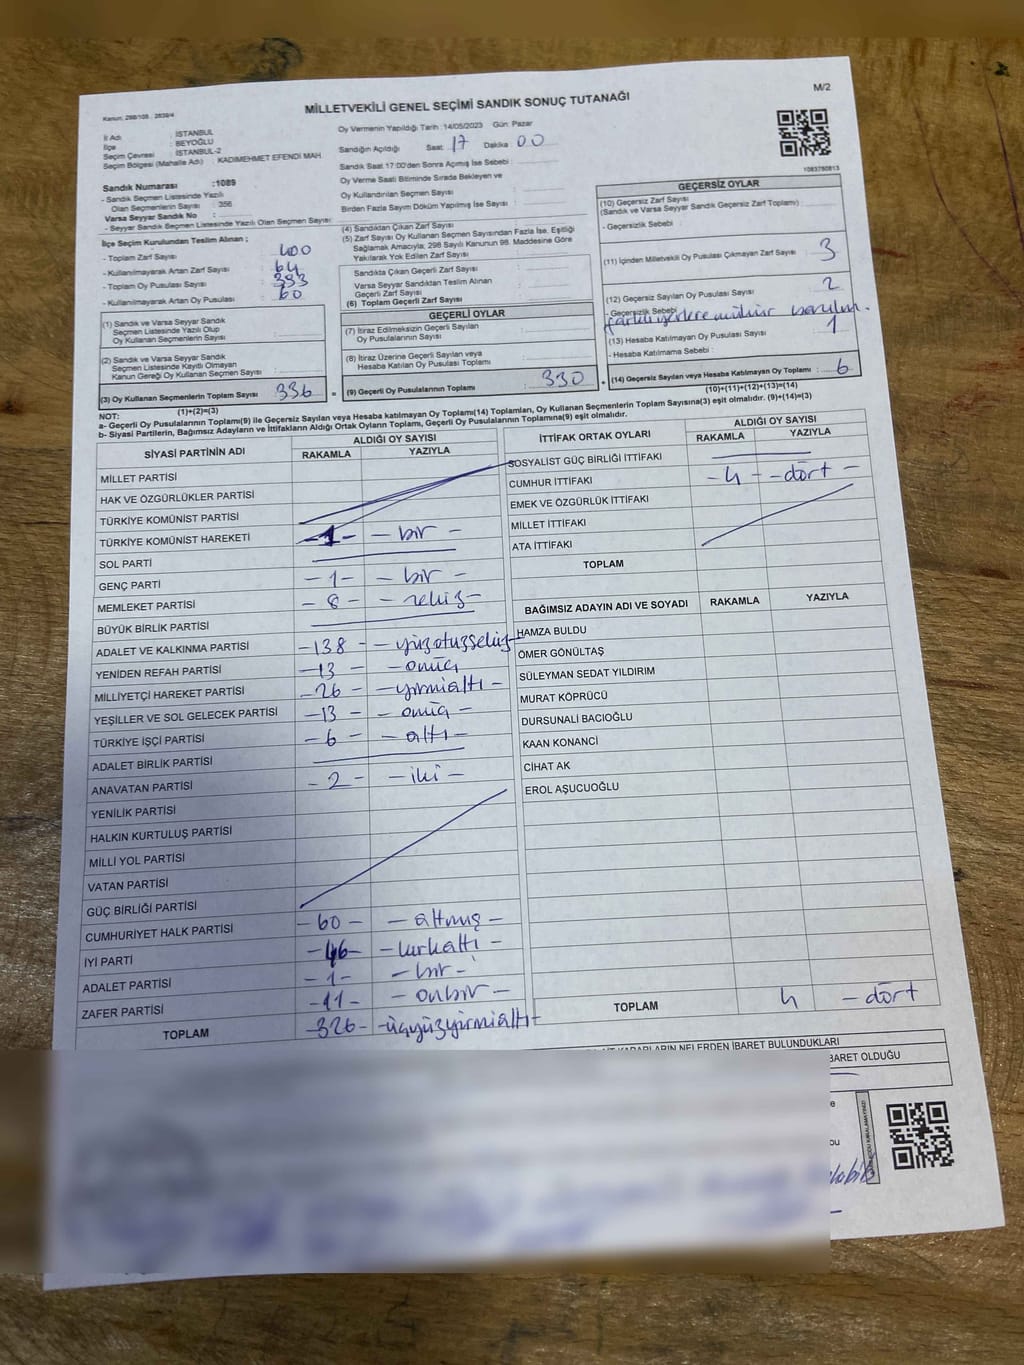 M/2
MİLLETVEKİLİ GENEL SEÇİMİ SANDIK SONUÇ TUTANAĞI
Kanun: 298/105 , 2839/4
İl Adı : İSTANBUL
İlçe : BEYOĞLU
Seçim Çevresi : İSTANBUL-2
Seçim Bölgesi (Mahalle Adı) : KADIMEHMET EFENDİ MAH.
Sandık Numarası :1089
- Sandık Seçmen Listesinde Yazılı
Olan Seçmenlerin Sayısı : 356
Varsa Seyyar Sandık No :
- Seyyar Sandık Seçmen Listesinde Yazılı Olan Seçmen Sayısı :
İlçe Seçim Kurulundan Teslim Alınan ;
- Toplam Zarf Sayısı : 400
- Kullanılmayarak Artan Zarf Sayısı : 64
- Toplam Oy Pusulası Sayısı : 393
- Kullanılmayarak Artan Oy Pusulası : 60
(1) Sandık ve Varsa Seyyar Sandık
Seçmen Listesinde Yazılı Olup
Oy Kullanan Seçmenlerin Sayısı :
(2) Sandık ve Varsa Seyyar Sandık
Seçmen Listesinde Kayıtlı Olmayan
Kanun Gereği Oy Kullanan Seçmen Sayısı :
(3) Oy Kullanan Seçmenlerin Toplam Sayısı : 336
(1)+(2)=(3)
Oy Vermenin Yapıldığı Tarih :14/05/2023 Gün: Pazar
Sandığın Açıldığı Saat 17 Dakika 00
Sandık Saat 17:00'den Sonra Açımış İse Sebebi :
Oy Verme Saati Bitiminde Sırada Bekleyen ve
Oy Kullandırılan Seçmen Sayısı :
Birden Fazla Sayım Döküm Yapılmış İse Sayısı :
(4) Sandıktan Çıkan Zarf Sayısı
(5) Zarf Sayısı Oy Kullanan Seçmen Sayısından Fazla İse, Eşitliği
Sağlamak Amacıyla; 298 Sayılı Kanunun 98. Maddesine Göre
Yakılarak Yok Edilen Zarf Sayısı :
Sandıkta Çıkan Geçerli Zarf Sayısı :
Varsa Seyyar Sandıktan Teslim Alınan
Geçerli Zarf Sayısı
(6) Toplam Geçerli Zarf Sayısı :
GEÇERLİ OYLAR
(7) İtiraz Edilmeksizin Geçerli Sayılan
Oy Pusulalarının Sayısı :
(8) İtiraz Üzerine Geçerli Sayılan veya
Hesaba Katılan Oy Pusulası Toplamı :
(9) Geçerli Oy Pusulalarının Toplamı : 330
1083750813
GEÇERSİZ OYLAR
(10) Geçersiz Zarf Sayısı
(Sandık ve Varsa Seyyar Sandık Geçersiz Zarf Toplamı) :
- Geçersizlik Sebebi :
(11) İçinden Milletvekili Oy Pusulası Çıkmayan Zarf Sayısı : 3
(12) Geçersiz Sayılan Oy Pusulası Sayısı : 2
- Geçersizlik Sebebi
farklı yerlere mühür
(13) Hesaba Katılmayan Oy Pusulası Sayısı : 1
- Hesaba Katılmama Sebebi :
(14) Geçersiz Sayılan veya Hesaba Katılmayan Oy Toplamı : 6
(10)+(11)+(12)+(13)=(14)
NOT:
a- Geçerli Oy Pusulalarının Toplamı(9) ile Geçersiz Sayılan veya Hesaba katılmayan Oy Toplamı(14) Toplamları, Oy Kullanan Seçmenlerin Toplam Sayısına(3) eşit olmalıdır. (9)+(14)=(3)
b- Siyasi Partilerin, Bağımsız Adayların ve İttifakların Aldığı Ortak Oyların Toplamı, Geçerli Oy Pusulalarının Toplamına(9) eşit olmalıdır.
SİYASİ PARTİNİN ADI ALDIĞI OY SAYISI
RAKAMLA YAZIYLA
MİLLET PARTİSİ
HAK VE ÖZGÜRLÜKLER PARTİSİ
TÜRKİYE KOMÜNİST PARTİSİ
TÜRKİYE KOMÜNİST HAREKETİ -1- - bir -
SOL PARTİ
GENÇ PARTİ -1- - bir -
MEMLEKET PARTİSİ - 8 - - sekiz -
BÜYÜK BİRLİK PARTİSİ
ADALET VE KALKINMA PARTİSİ -138 - - yüzotuzsekiz -
YENİDEN REFAH PARTİSİ -13 - - onüç
MİLLİYETÇİ HAREKET PARTİSİ -26 - - yirmialtı -
YEŞİLLER VE SOL GELECEK PARTİSİ -13 - - onüç -
TÜRKİYE İŞÇİ PARTİSİ - 6 - - altı -
ADALET BİRLİK PARTİSİ
ANAVATAN PARTİSİ - 2 - - iki -
YENİLİK PARTİSİ
HALKIN KURTULUŞ PARTİSİ
MİLLİ YOL PARTİSİ
VATAN PARTİSİ
GÜÇ BİRLİĞİ PARTİSİ
CUMHURİYET HALK PARTİSİ -60 - - altmış -
İYİ PARTİ -46- - kırkaltı -
ADALET PARTİSİ -1- - bir -
ZAFER PARTİSİ -11- - onbir -
TOPLAM -326- -üçyüzyirmialtı-
İTTİFAK ORTAK OYLARI ALDIĞI OY SAYISI
RAKAMLA YAZIYLA
SOSYALİST GÜÇ BİRLİĞİ İTTİFAKI
CUMHUR İTTİFAKI - 4 - - dört -
EMEK VE ÖZGÜRLÜK İTTİFAKI
MİLLET İTTİFAKI
ATA İTTİFAKI
TOPLAM
BAĞIMSIZ ADAYIN ADI VE SOYADI RAKAMLA YAZIYLA
HAMZA BULDU
ÖMER GÖNÜLTAŞ
SÜLEYMAN SEDAT YILDIRIM
MURAT KÖPRÜCÜ
DURSUNALİ BACIOĞLU
KAAN KONANCİ
CİHAT AK
EROL AŞUCUOĞLU
TOPLAM 4 - dört
KARARLARIN NELERDEN İBARET BULUNDUKLARI
BARET OLDUĞU